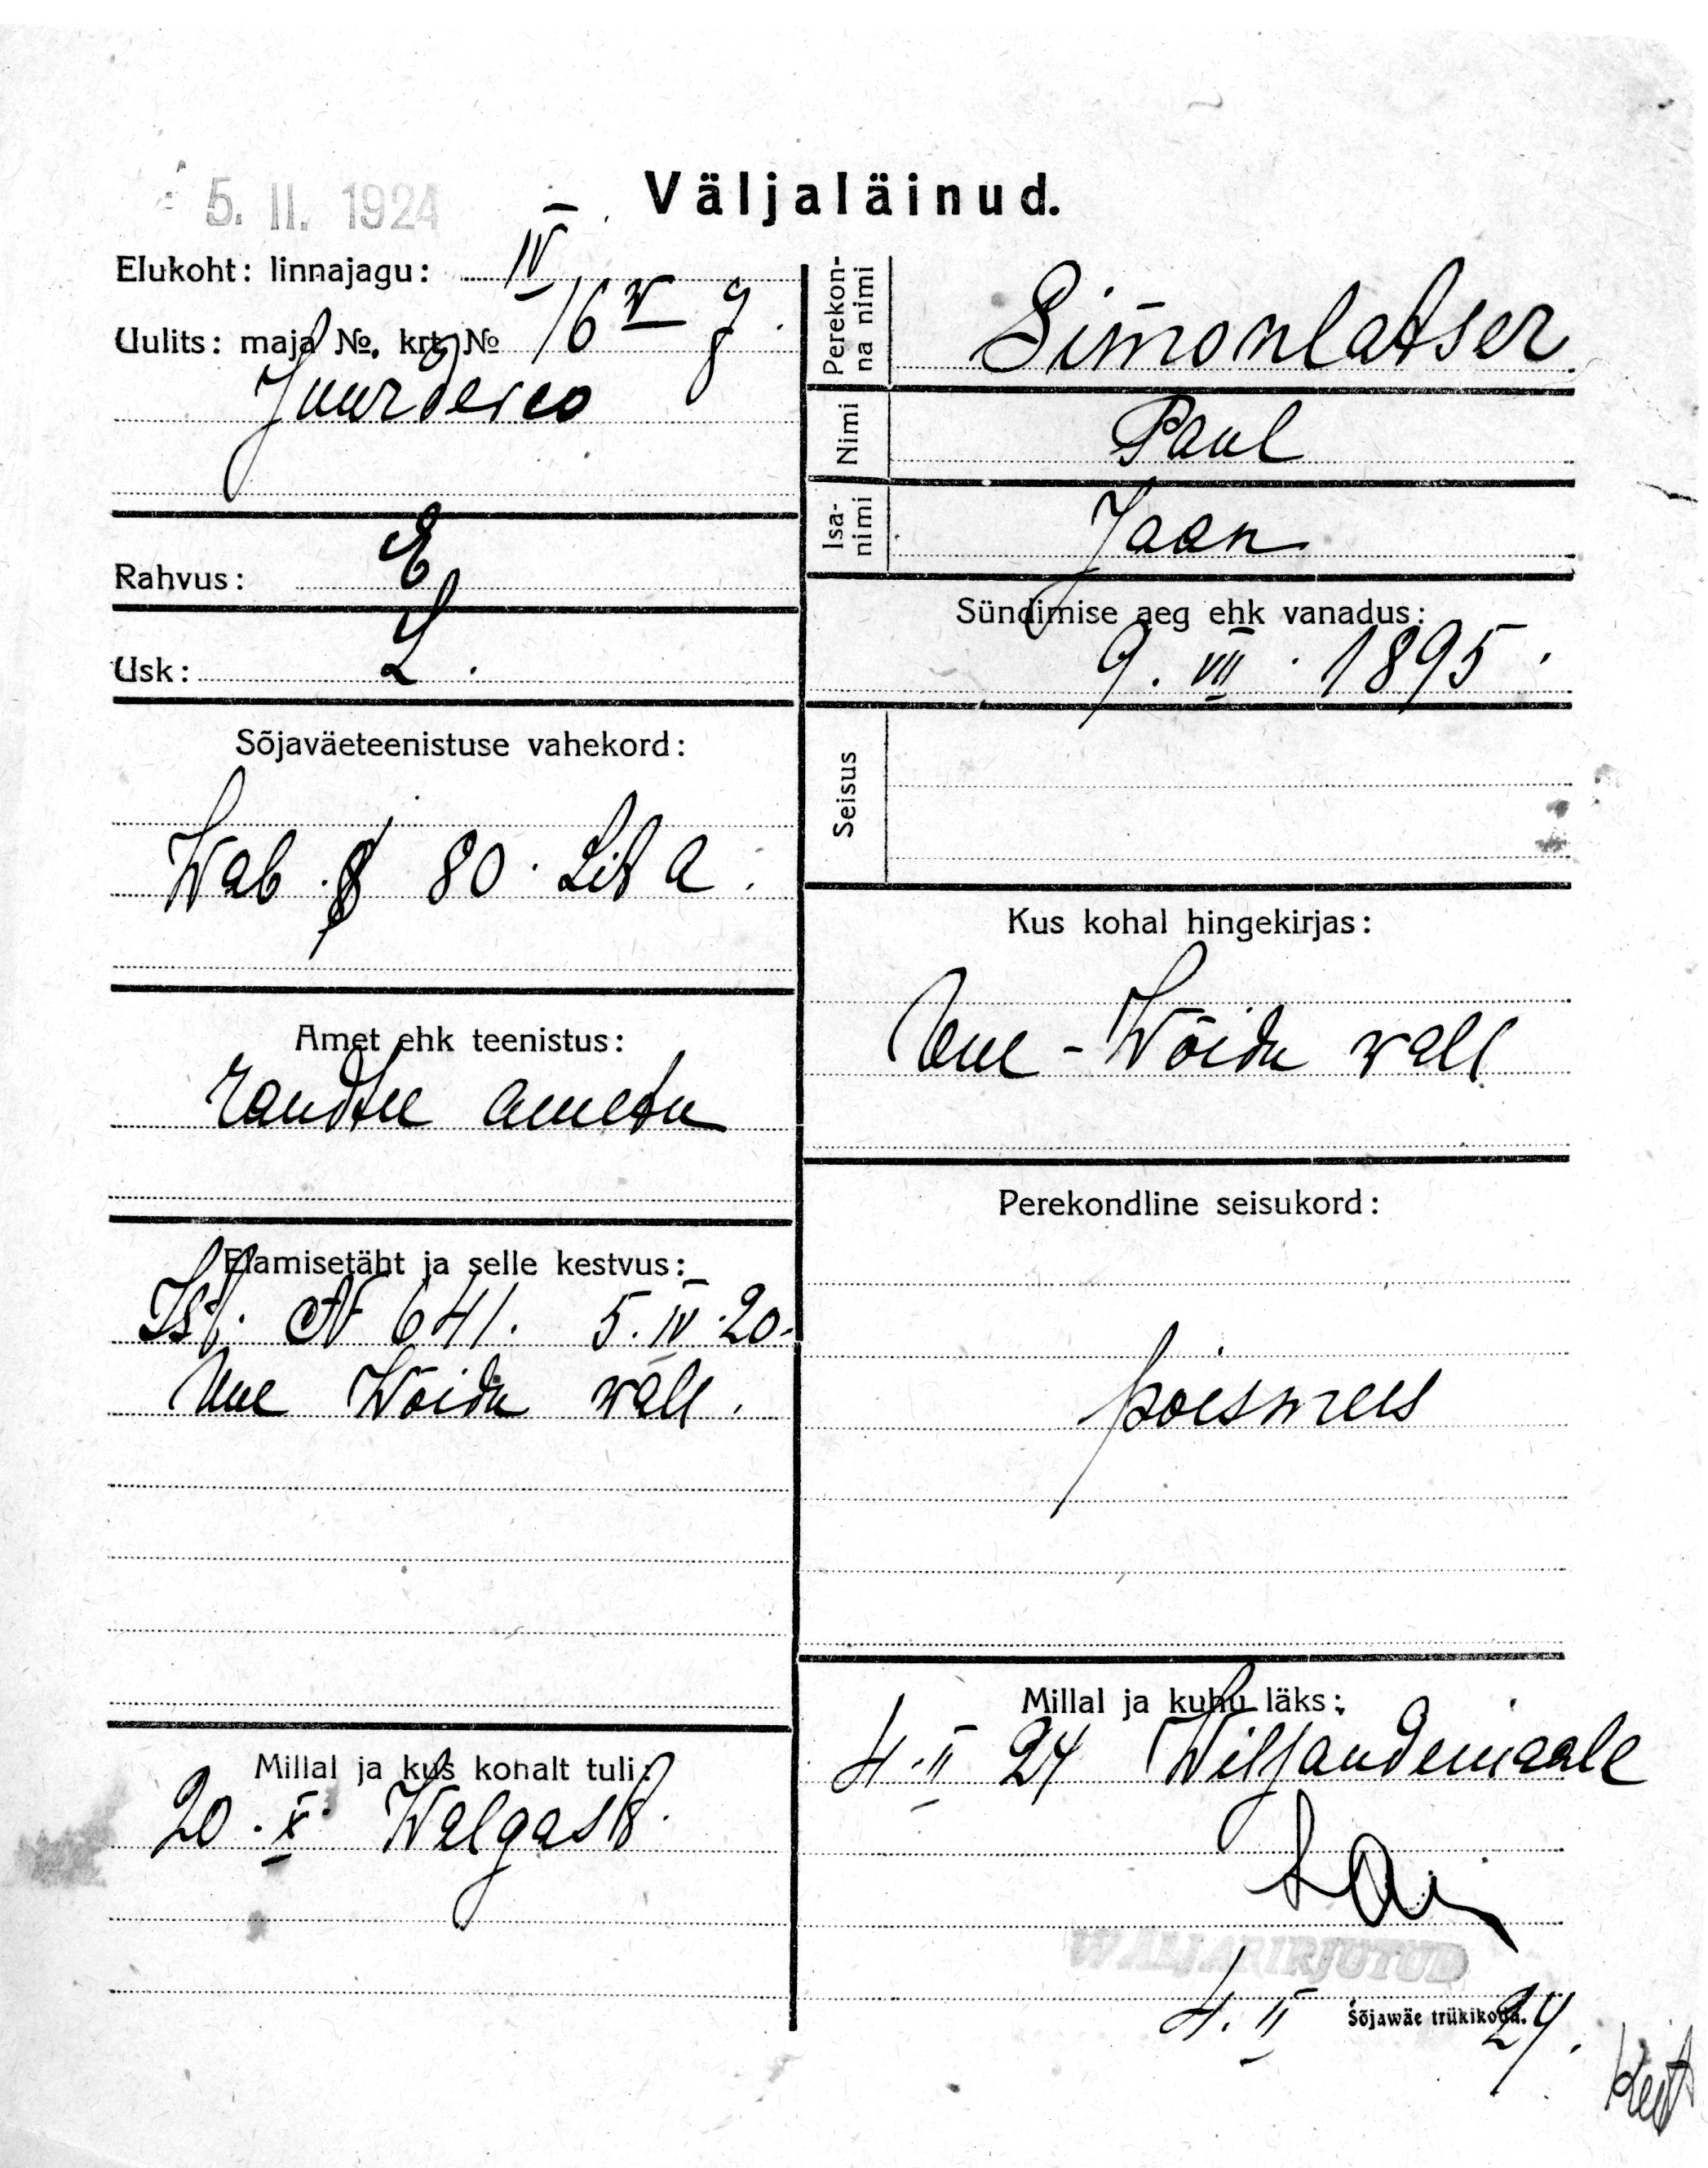 5. II. 1924
Väljaläinud.
Elukoht: linnajagu: IV
Uulits: maja №, krt. № 16
Rahvus: E
Usk: L.
Sõjaväeteenistuse vahekord:
Wab. § 80. Lit a.
Amet ehk teenistus:
raudtee ametn
Elamisetäht ja selle kestvus:
Ist. N 641. 5. IV. 20.
Uue Wõidu wall.
Millal ja kus kohalt tuli:
20. X. Walgast.
Perekonna nimi
Simonlatser
Nimi
Paul
Isanimi
Jaan
Sündimise aeg ehk vanadus:
9. VII. 1895.
Seisus
Kus kohal hingekirjas:
Uue-Wõidu wall
Perekondline seisukord:
poismees
Millal ja kuhu läks:
4. II 24 Wiljandemaale
WÄLJAKIRJUTUD
4. II 24.
Sõjawäe trükikoda.